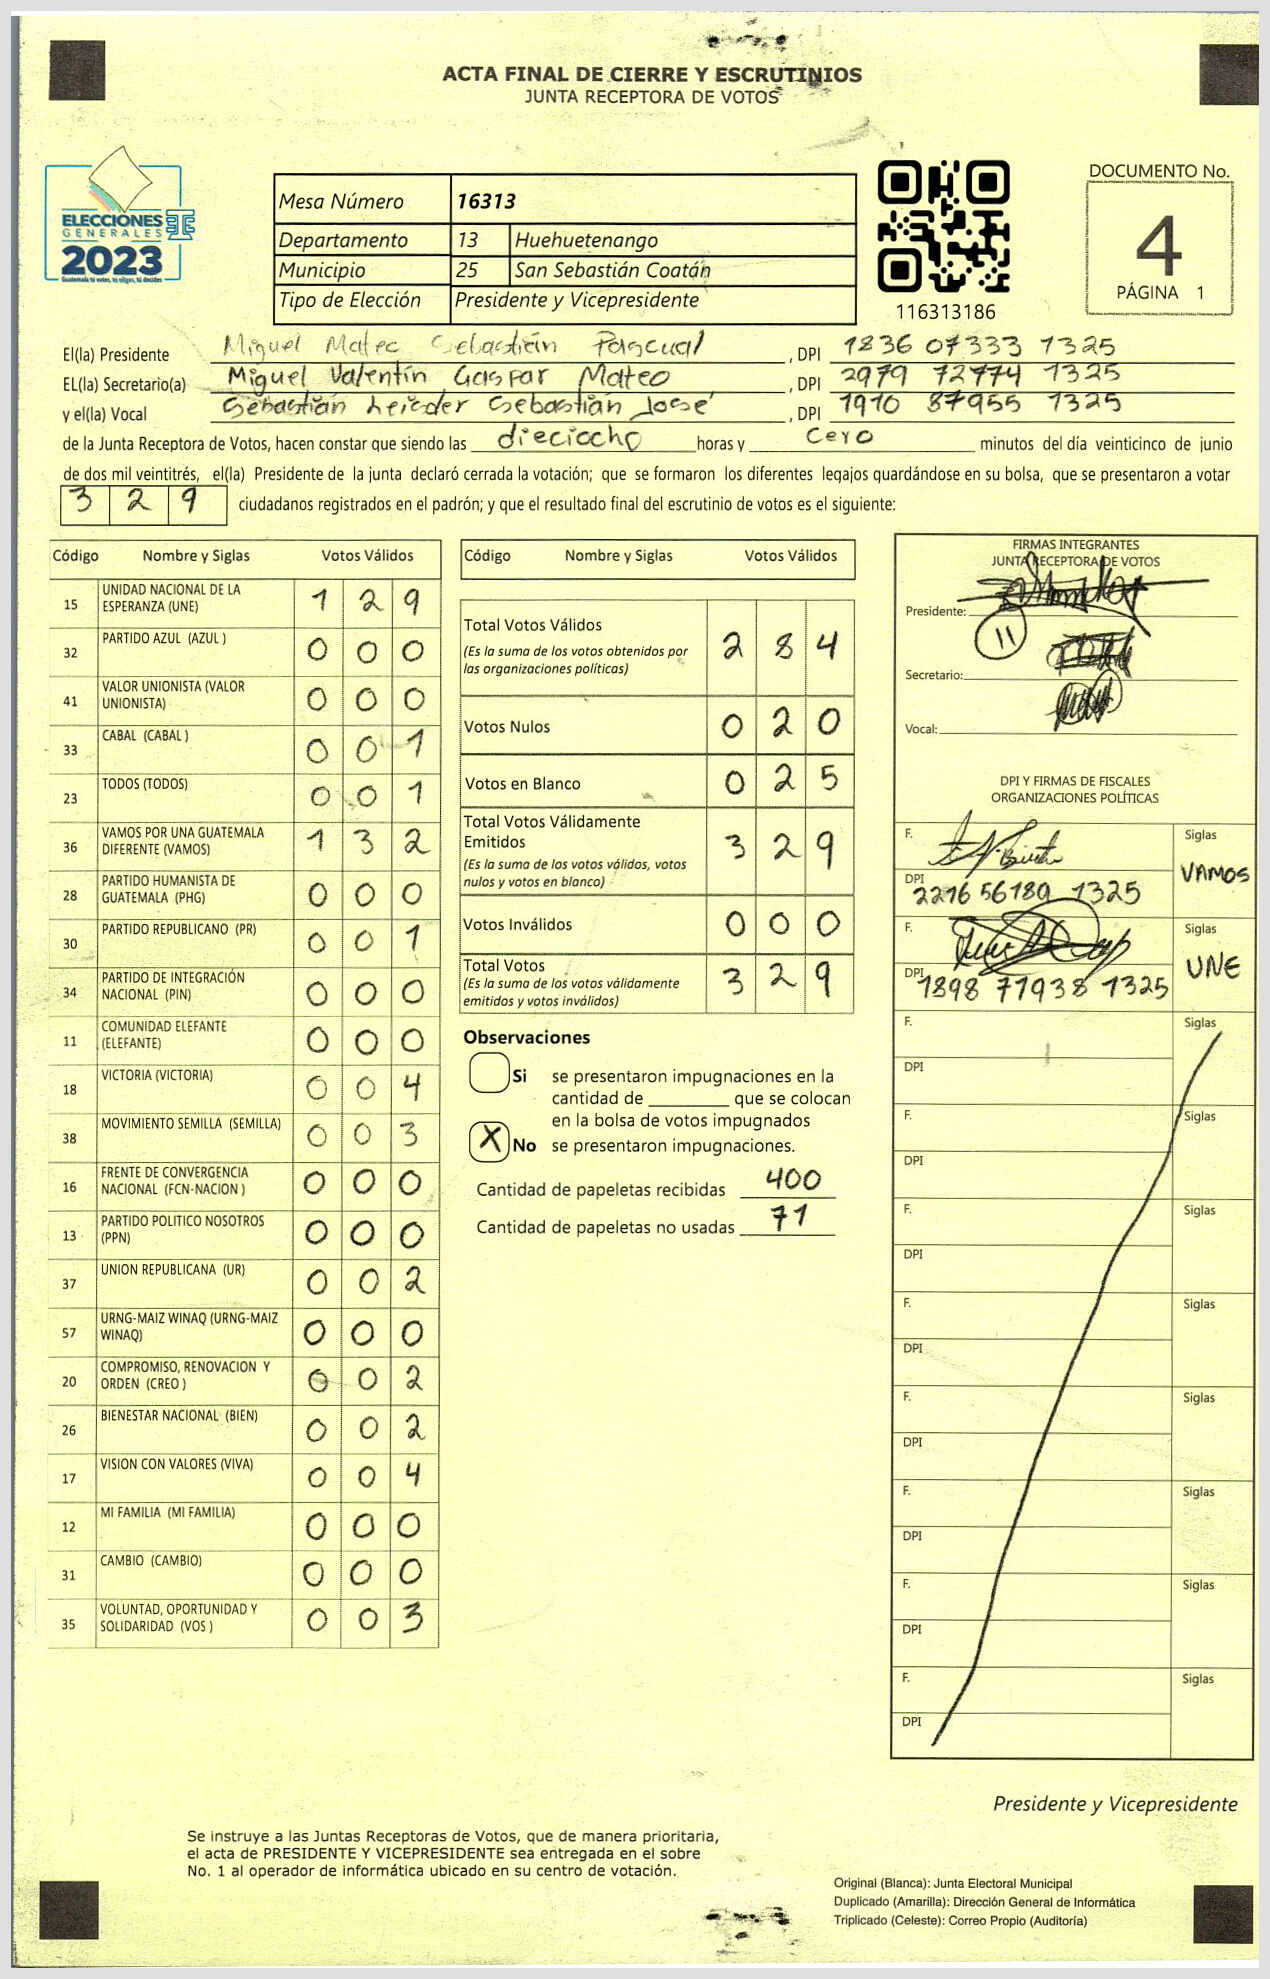 ACTA FINAL DE CIERRE Y ESCRUTINIOS
JUNTA RECEPTORA DE VOTOS
ELECCIONES
GENERALES
2023
Guatemala tú votas, tú eliges, tú decides
Mesa Número 16313
Departamento 13 Huehuetenango
Municipio 25 San Sebastián Coatán
Tipo de Elección Presidente y Vicepresidente
116313186
DOCUMENTO No.
4
PÁGINA 1
El(la) Presidente Miguel Mateo Sebastián Pascual, DPI 1836 07333 1325
EL(la) Secretario(a) Miguel Valentín Gaspar Mateo, DPI 2979 72774 1325
y el(la) Vocal Sebastián Leisder Sebastián José, DPI 1910 87955 1325
de la Junta Receptora de Votos, hacen constar que siendo las dieciocho horas y cero minutos del día veinticinco de junio
de dos mil veintitrés, el(la) Presidente de la junta declaró cerrada la votación; que se formaron los diferentes legajos guardándose en su bolsa, que se presentaron a votar
329 ciudadanos registrados en el padrón; y que el resultado final del escrutinio de votos es el siguiente:
Código Nombre y Siglas Votos Válidos
15 UNIDAD NACIONAL DE LA ESPERANZA (UNE) 1 2 9
32 PARTIDO AZUL (AZUL ) 0 0 0
41 VALOR UNIONISTA (VALOR UNIONISTA) 0 0 0
33 CABAL (CABAL ) 0 0 1
23 TODOS (TODOS) 0 0 1
36 VAMOS POR UNA GUATEMALA DIFERENTE (VAMOS) 1 3 2
28 PARTIDO HUMANISTA DE GUATEMALA (PHG) 0 0 0
30 PARTIDO REPUBLICANO (PR) 0 0 1
34 PARTIDO DE INTEGRACIÓN NACIONAL (PIN) 0 0 0
11 COMUNIDAD ELEFANTE (ELEFANTE) 0 0 0
18 VICTORIA (VICTORIA) 0 0 4
38 MOVIMIENTO SEMILLA (SEMILLA) 0 0 3
16 FRENTE DE CONVERGENCIA NACIONAL (FCN-NACION ) 0 0 0
13 PARTIDO POLITICO NOSOTROS (PPN) 0 0 0
37 UNION REPUBLICANA (UR) 0 0 2
57 URNG-MAIZ WINAQ (URNG-MAIZ WINAQ) 0 0 0
20 COMPROMISO, RENOVACION Y ORDEN (CREO ) 0 0 2
26 BIENESTAR NACIONAL (BIEN) 0 0 2
17 VISION CON VALORES (VIVA) 0 0 4
12 MI FAMILIA (MI FAMILIA) 0 0 0
31 CAMBIO (CAMBIO) 0 0 0
35 VOLUNTAD, OPORTUNIDAD Y SOLIDARIDAD (VOS ) 0 0 3
Código Nombre y Siglas Votos Válidos
Total Votos Válidos 2 8 4
(Es la suma de los votos obtenidos por
las organizaciones políticas)
Votos Nulos 0 2 0
Votos en Blanco 0 2 5
Total Votos Válidamente
Emitidos 3 2 9
(Es la suma de los votos válidos, votos
nulos y votos en blanco)
Votos Inválidos 0 0 0
Total Votos 3 2 9
(Es la suma de los votos válidamente
emitidos y votos inválidos)
Observaciones
Si se presentaron impugnaciones en la
cantidad de ________ que se colocan
en la bolsa de votos impugnados
X No se presentaron impugnaciones.
Cantidad de papeletas recibidas 400
Cantidad de papeletas no usadas 71
FIRMAS INTEGRANTES
JUNTA RECEPTORA DE VOTOS
Presidente:
11
Secretario:
Vocal:
DPI Y FIRMAS DE FISCALES
ORGANIZACIONES POLÍTICAS
F. Siglas
VAMOS
DPI 2216 56189 1325
F. Siglas
UNE
DPI 1898 71938 1325
F. Siglas
DPI
F. Siglas
DPI
F. Siglas
DPI
F. Siglas
DPI
F. Siglas
DPI
F. Siglas
DPI
F. Siglas
DPI
F. Siglas
DPI
Presidente y Vicepresidente
Se instruye a las Juntas Receptoras de Votos, que de manera prioritaria,
el acta de PRESIDENTE Y VICEPRESIDENTE sea entregada en el sobre
No. 1 al operador de informática ubicado en su centro de votación.
Original (Blanca): Junta Electoral Municipal
Duplicado (Amarilla): Dirección General de Informática
Triplicado (Celeste): Correo Propio (Auditoría)